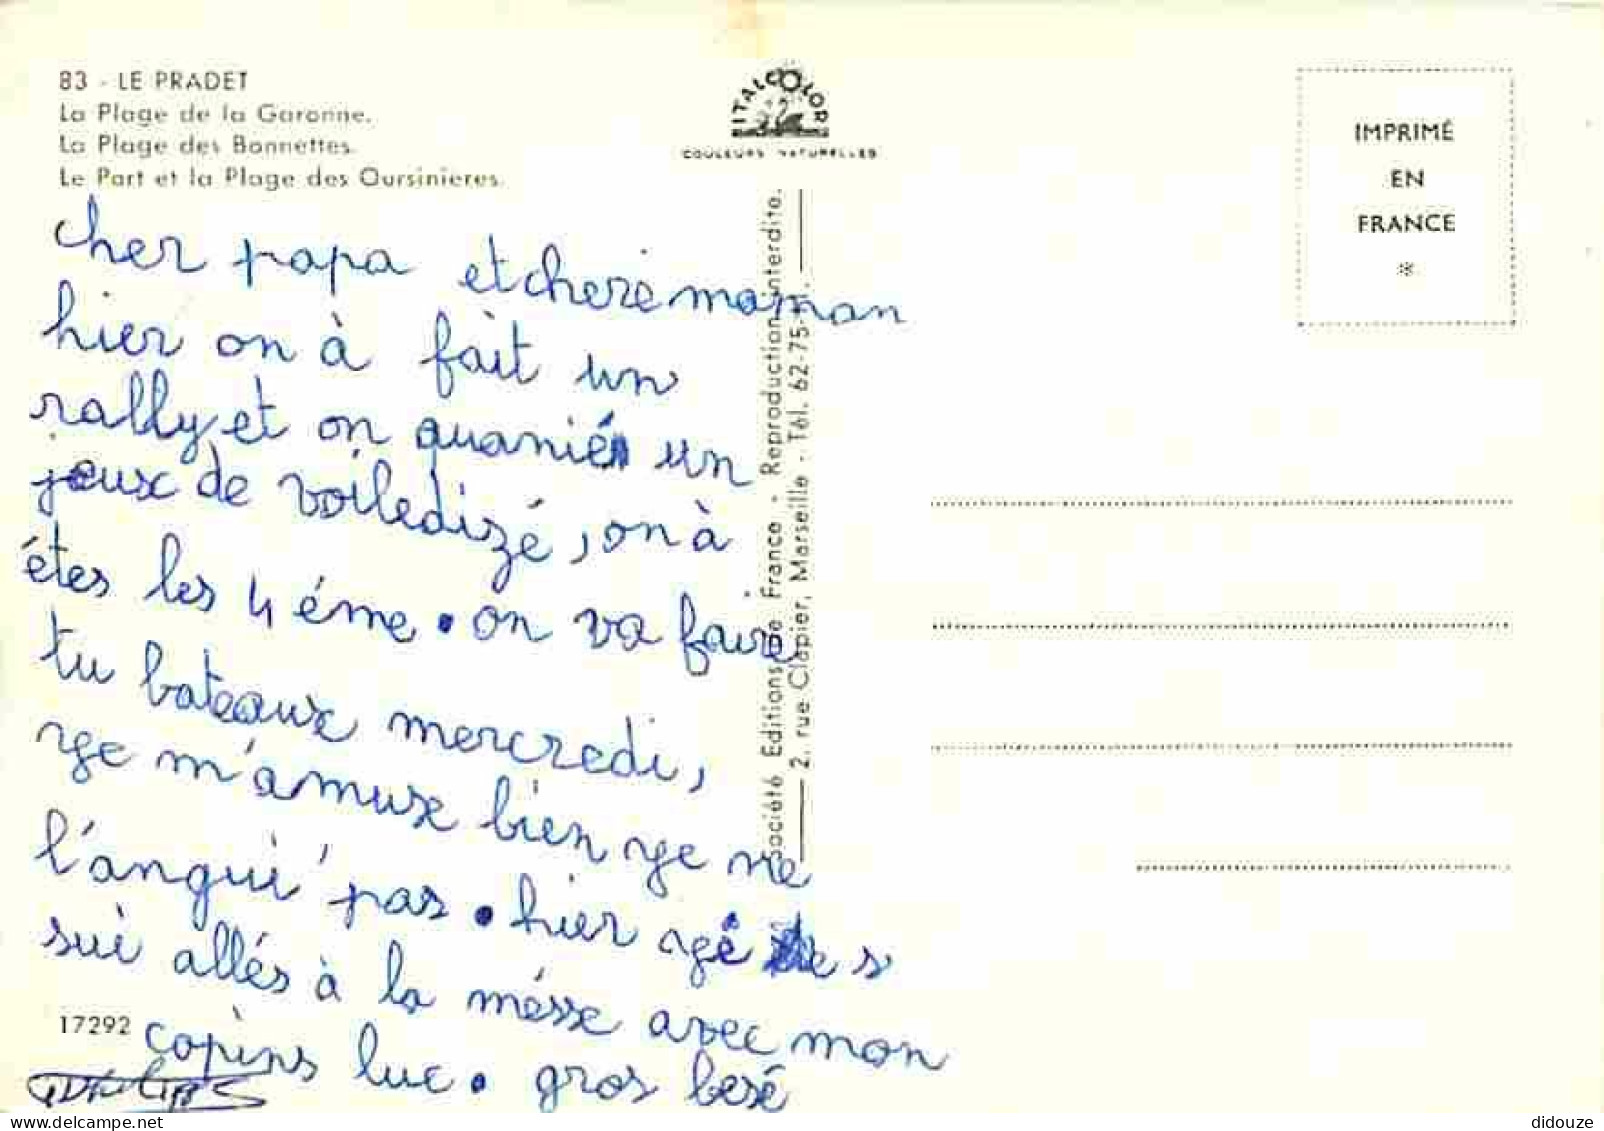 83 - LE PRADET
La Plage de la Garonne.
La Plage des Bonnettes.
Le Port et la Plage des Oursinieres.
ITALCOLOR
COULEURS NATURELLES
IMPRIMÉ
EN
FRANCE
*
Société Editions de France - Reproduction interdite.
2, rue Clapier, Marseille - Tél. 62-75-
cher papa et cheré maman
hier on à fait un
rally et on quanié un
jeux de voiledizé, on à
étes les 4 éme. on va faire
tu bateaux mercredi,
ge m'amuse bien ge ne
l'angui pas. hier gé
sui allés à la mésse avec mon
copins luc. gros besé
17292
PHILIPPE
didouze